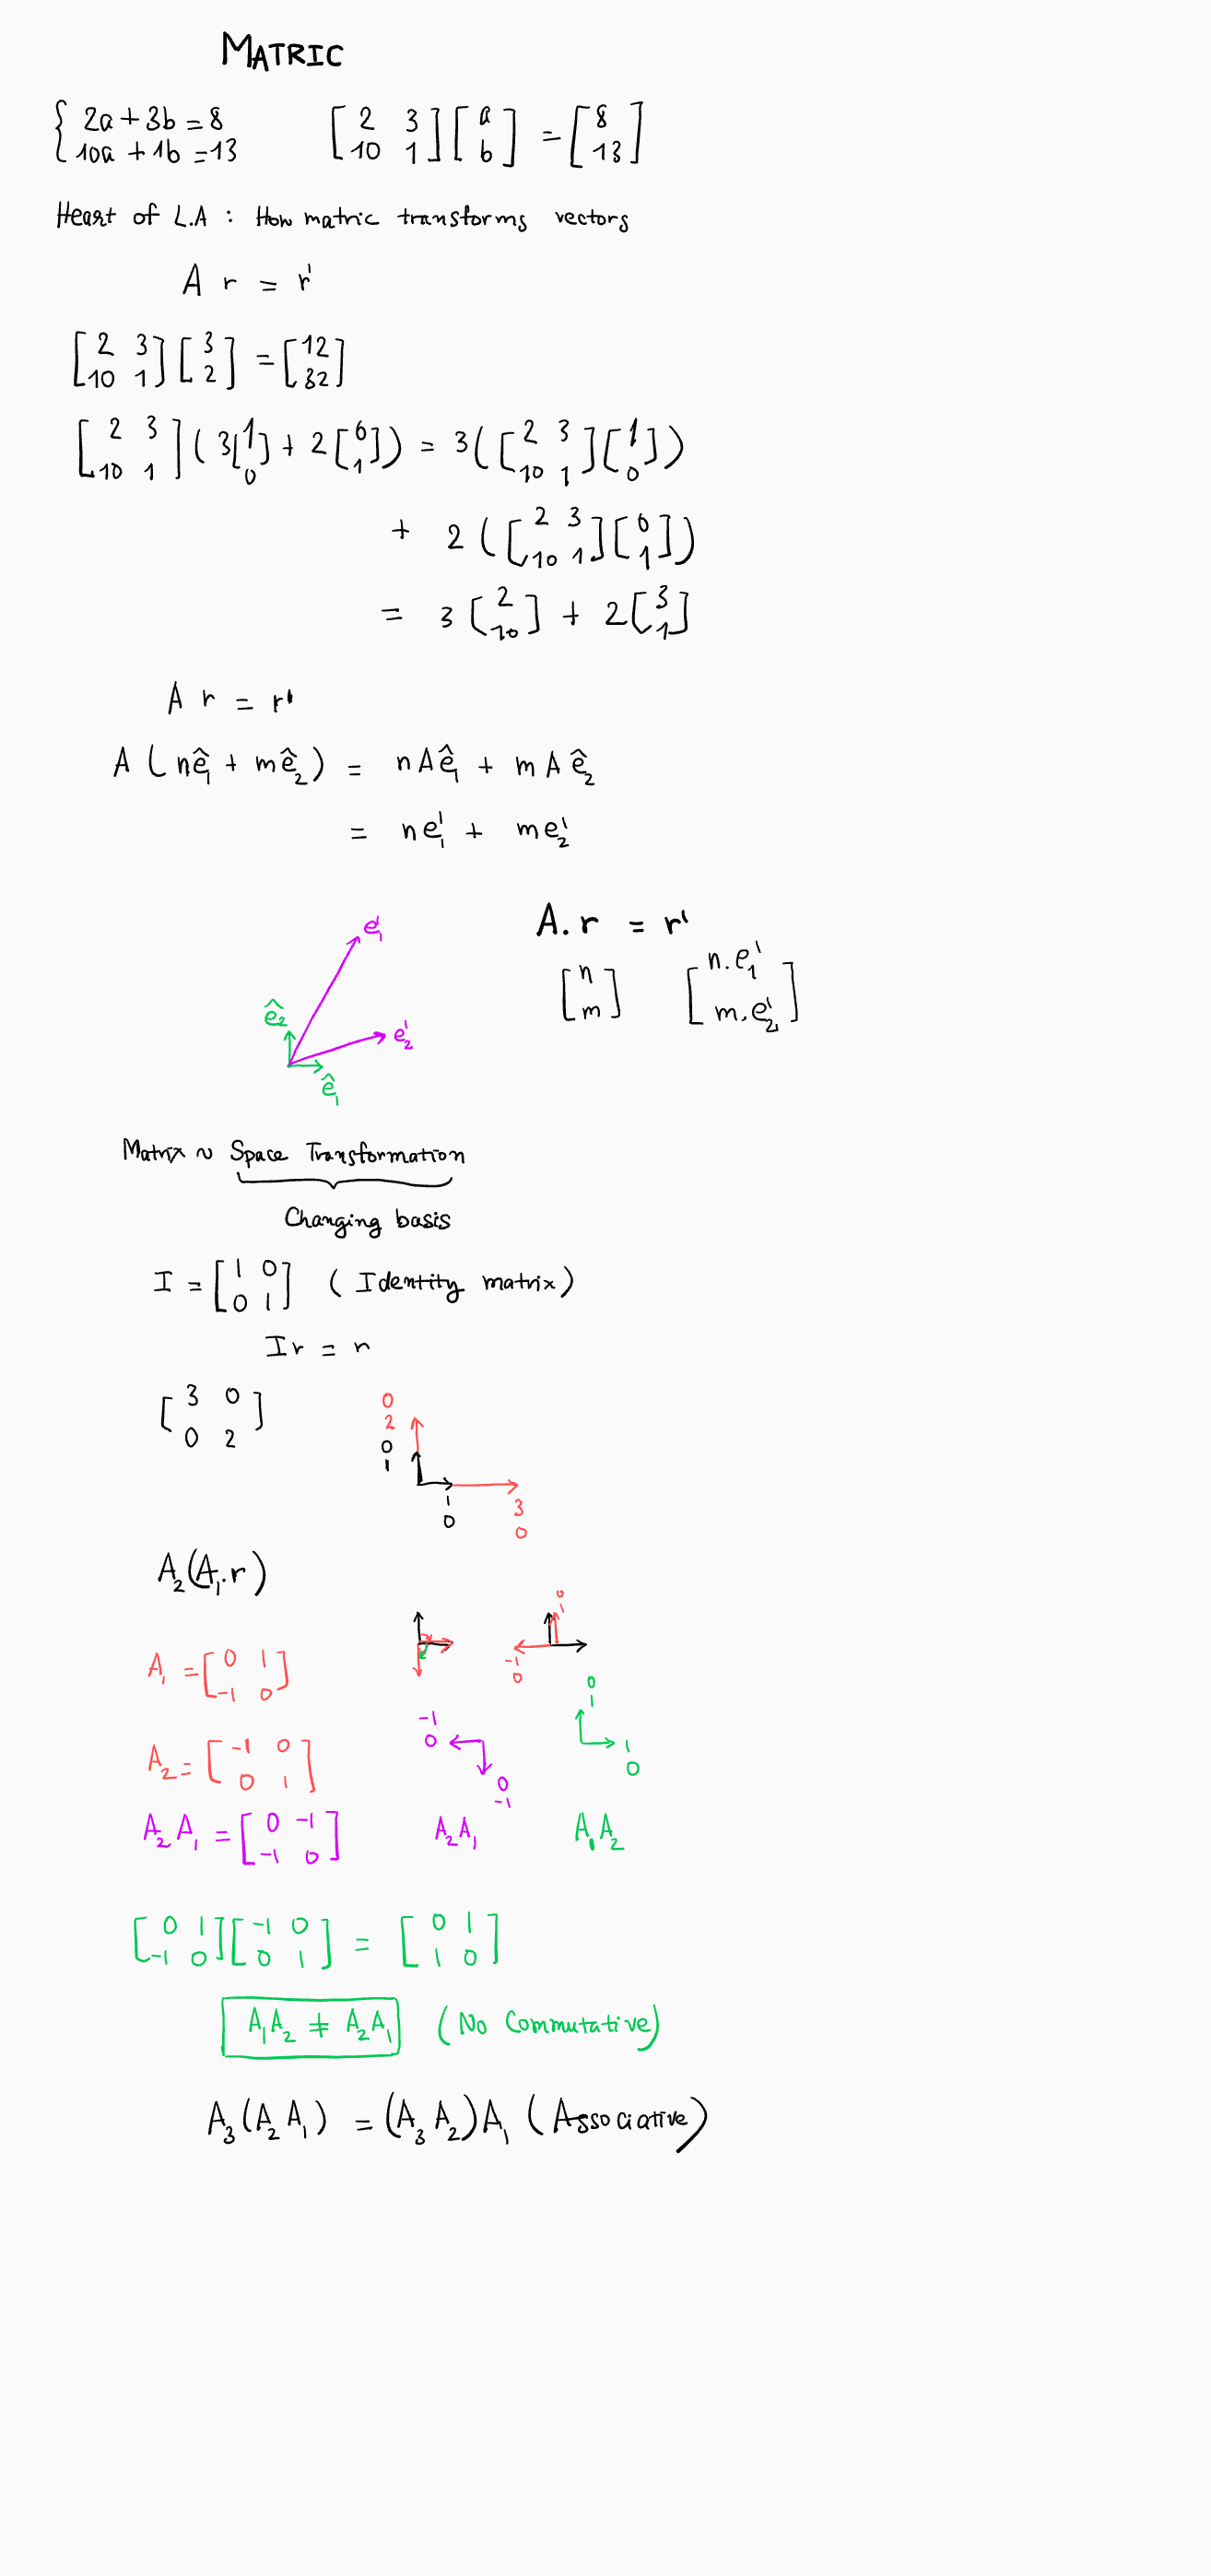 MATRIC
{ 2a + 3b = 8
10a + 1b = 13
[2 3; 10 1] [a; b] = [8; 13]
Heart of L.A : How matric transforms vectors
A r = r'
[2 3; 10 1] [3; 2] = [12; 32]
[2 3; 10 1] (3[1; 0] + 2[0; 1]) = 3([2 3; 10 1] [1; 0])
+ 2([2 3; 10 1] [0; 1])
= 3[2; 10] + 2[3; 1]
A r = r'
A (nê₁ + mê₂) = nAê₁ + mAê₂
= ne₁' + me₂'
e₁'
ê₂
e₂'
ê₁
A. r = r'
[n; m] [n.e₁'; m.e₂']
Matrix ~ Space Transformation
Changing basis
I = [1 0; 0 1] (Identity matrix)
Ir = r
[3 0; 0 2]
0
2
0
1
1
0
3
0
A₂(A₁.r)
0
1
-1
0
A₁ = [0 1; -1 0]
A₂ = [-1 0; 0 1]
-1
0
0
-1
0
1
1
0
A₂A₁ = [0 -1; -1 0]
A₂A₁
A₁A₂
[0 1; -1 0] [-1 0; 0 1] = [0 1; 1 0]
A₁A₂ ≠ A₂A₁ (No Commutative)
A₃(A₂A₁) = (A₃A₂)A₁ (Associative)